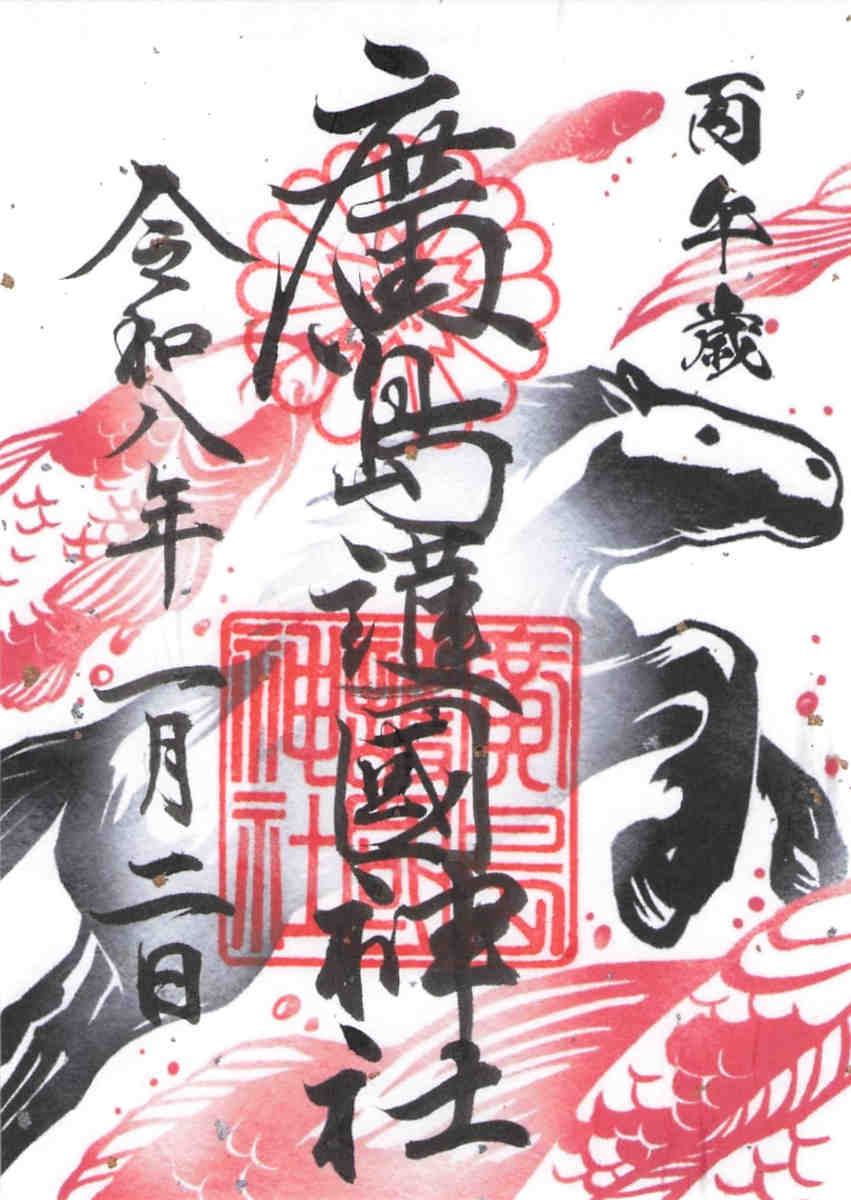 丙午歳
廣島護國神社
廣島護國神社
令和八年 一月二日